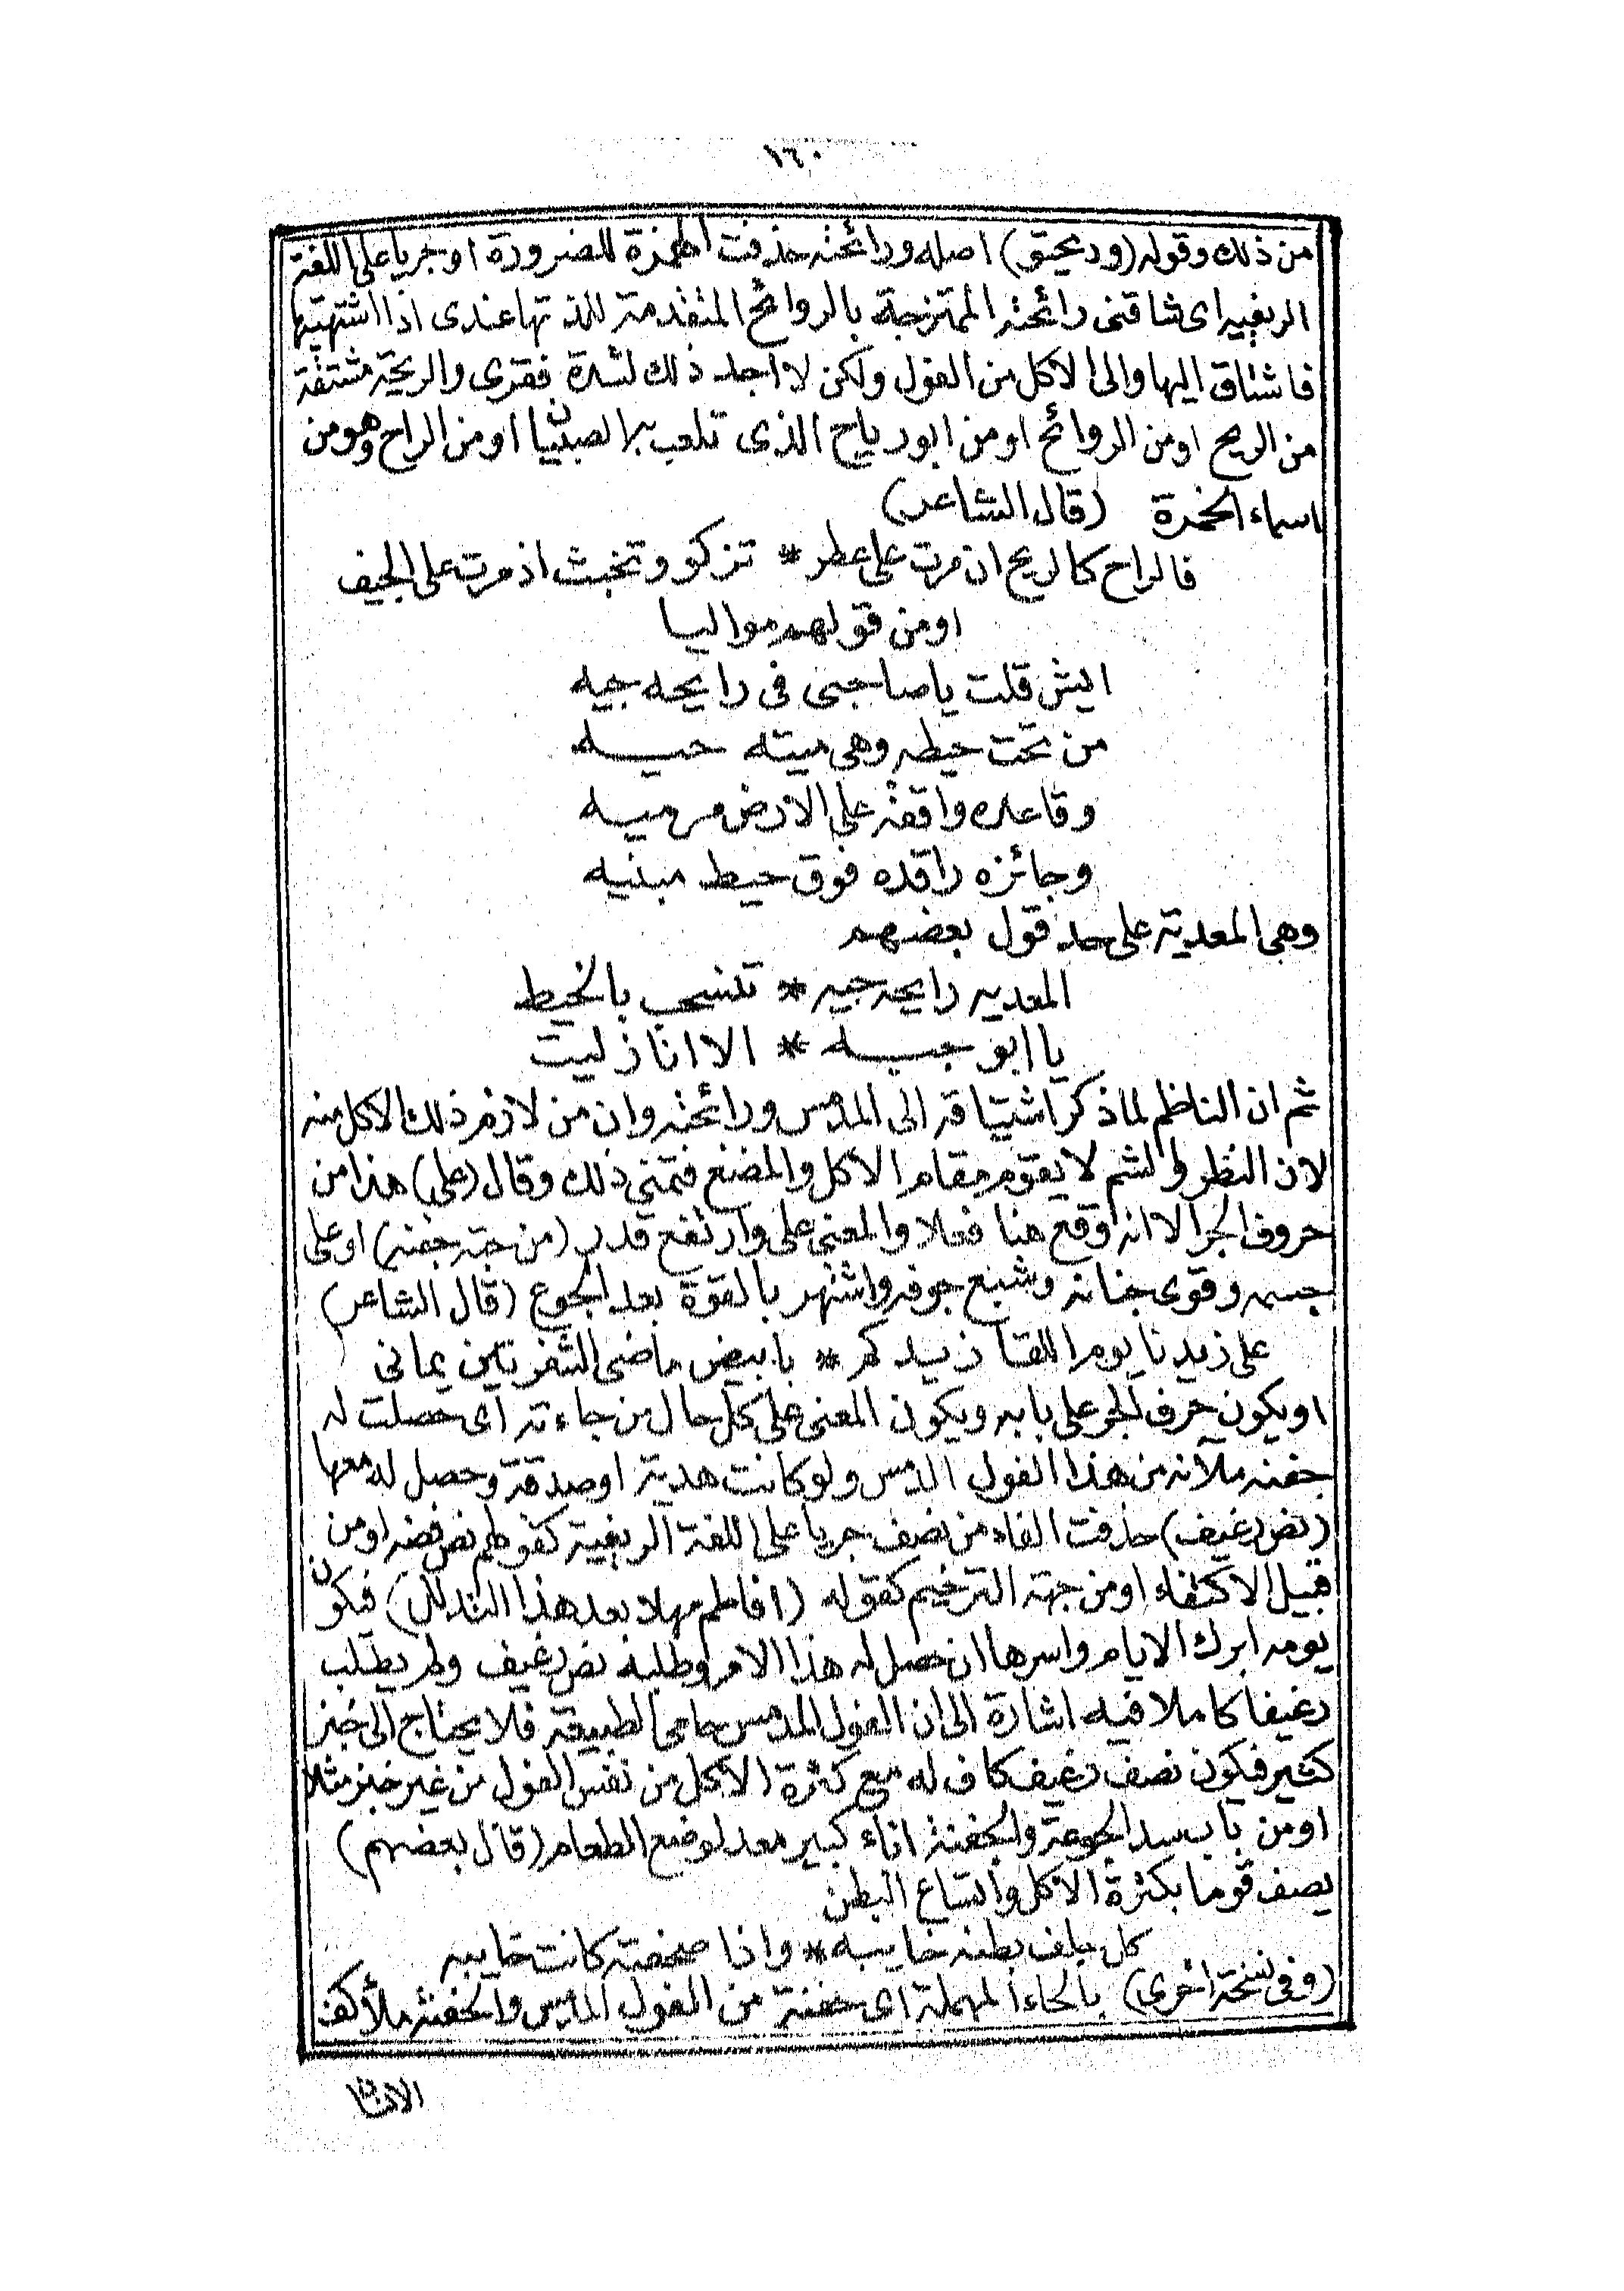 ١٦٠
من ذلك وقوله (وريحتو) اصله ورائحته حذفت الهمزة للضرورة او جريا على اللغة
الريفيه اى شاقنى رائحته الممتزجة بالروائح المتقدمة للذتها عندى اذا اشتهيتها
فاشتاق اليها والى الاكل من الفول ولكن لا اجد ذلك لشدة فقرى والريحة مشتقة
من الريح او من الروائح او من ابو رياح الذى تلعب به الصبيان او من الراح وهو من
اسماء الخمرة (قال الشاعر)
فالراح كالريح ان مرت على عطر * تزكو وتخبث اذ مرت على الجيف
او من قولهم مواليا
ايش قلت يا صاحبى فى رايحه جيه
من تحت حيطه وهى ميته حيه
وقاعده واقفة على الارض مرميه
وجائزه راقده فوق حيط مبنيه
وهى المعدية على حد قول بعضهم
المعديه رايحه جيه * تنسحب بالخيط
يا ابو جبيه * الا انا زليت
ثم ان الناظم لما ذكر اشتياقه الى المدمس ورائحته وان من لازم ذلك الاكل منه
لان النظر والشم لا يقوم مقام الاكل والمضغ فتمنى ذلك وقال (على) هذا من
حروف الجر الا انه وقع هنا فعلا والمعنى على وارتفع قدر (من جته جفنه) او على
جسمه وقوى جنانه وشبع جوفه واشتهر بالقوة بعد الجوع (قال الشاعر)
على زيدنا يوم اللقا زيدكم * بابيض ماضى الشفرتين يمانى
او يكون حرف الجر على بابه ويكون المعنى على كل حال من جاءته اى حصلت له
جفنه ملآنه من هذا الفول المدمس ولو كانت هدية او صدقة وحصل له معها
(نص رغيف) حذفت الفاء من نصف جريا على اللغة الريفية كقولهم نص فضه او من
قبيل الاكتفاء او من جهة الترخيم كقوله (افاطم مهلا بعد هذا التدلل) فيكون
يومه ابرك الايام واسرها ان حصل له هذا الامر وطلبه نص رغيف ولم يطلب
رغيفا كاملا فيه اشارة الى ان الفول المدمس حامى الطبيعة فلا يحتاج الى خبز
كثير فيكون نصف رغيف كاف له مع كثرة الاكل من نفس الفول من غير خبز مثلا
او من باب سد الجوعة والجفنة اناء كبير معد لوضع الطعام (قال بعضهم)
يصف قوما بكثرة الاكل واتساع البطن
كل جلف بطنه خابيه * واذا صحفته كانت خابيه
(وفى نسخة اخرى) بالحاء المهملة اى حفنة من الفول المدمس والحفنة ملأ كف
الانسان